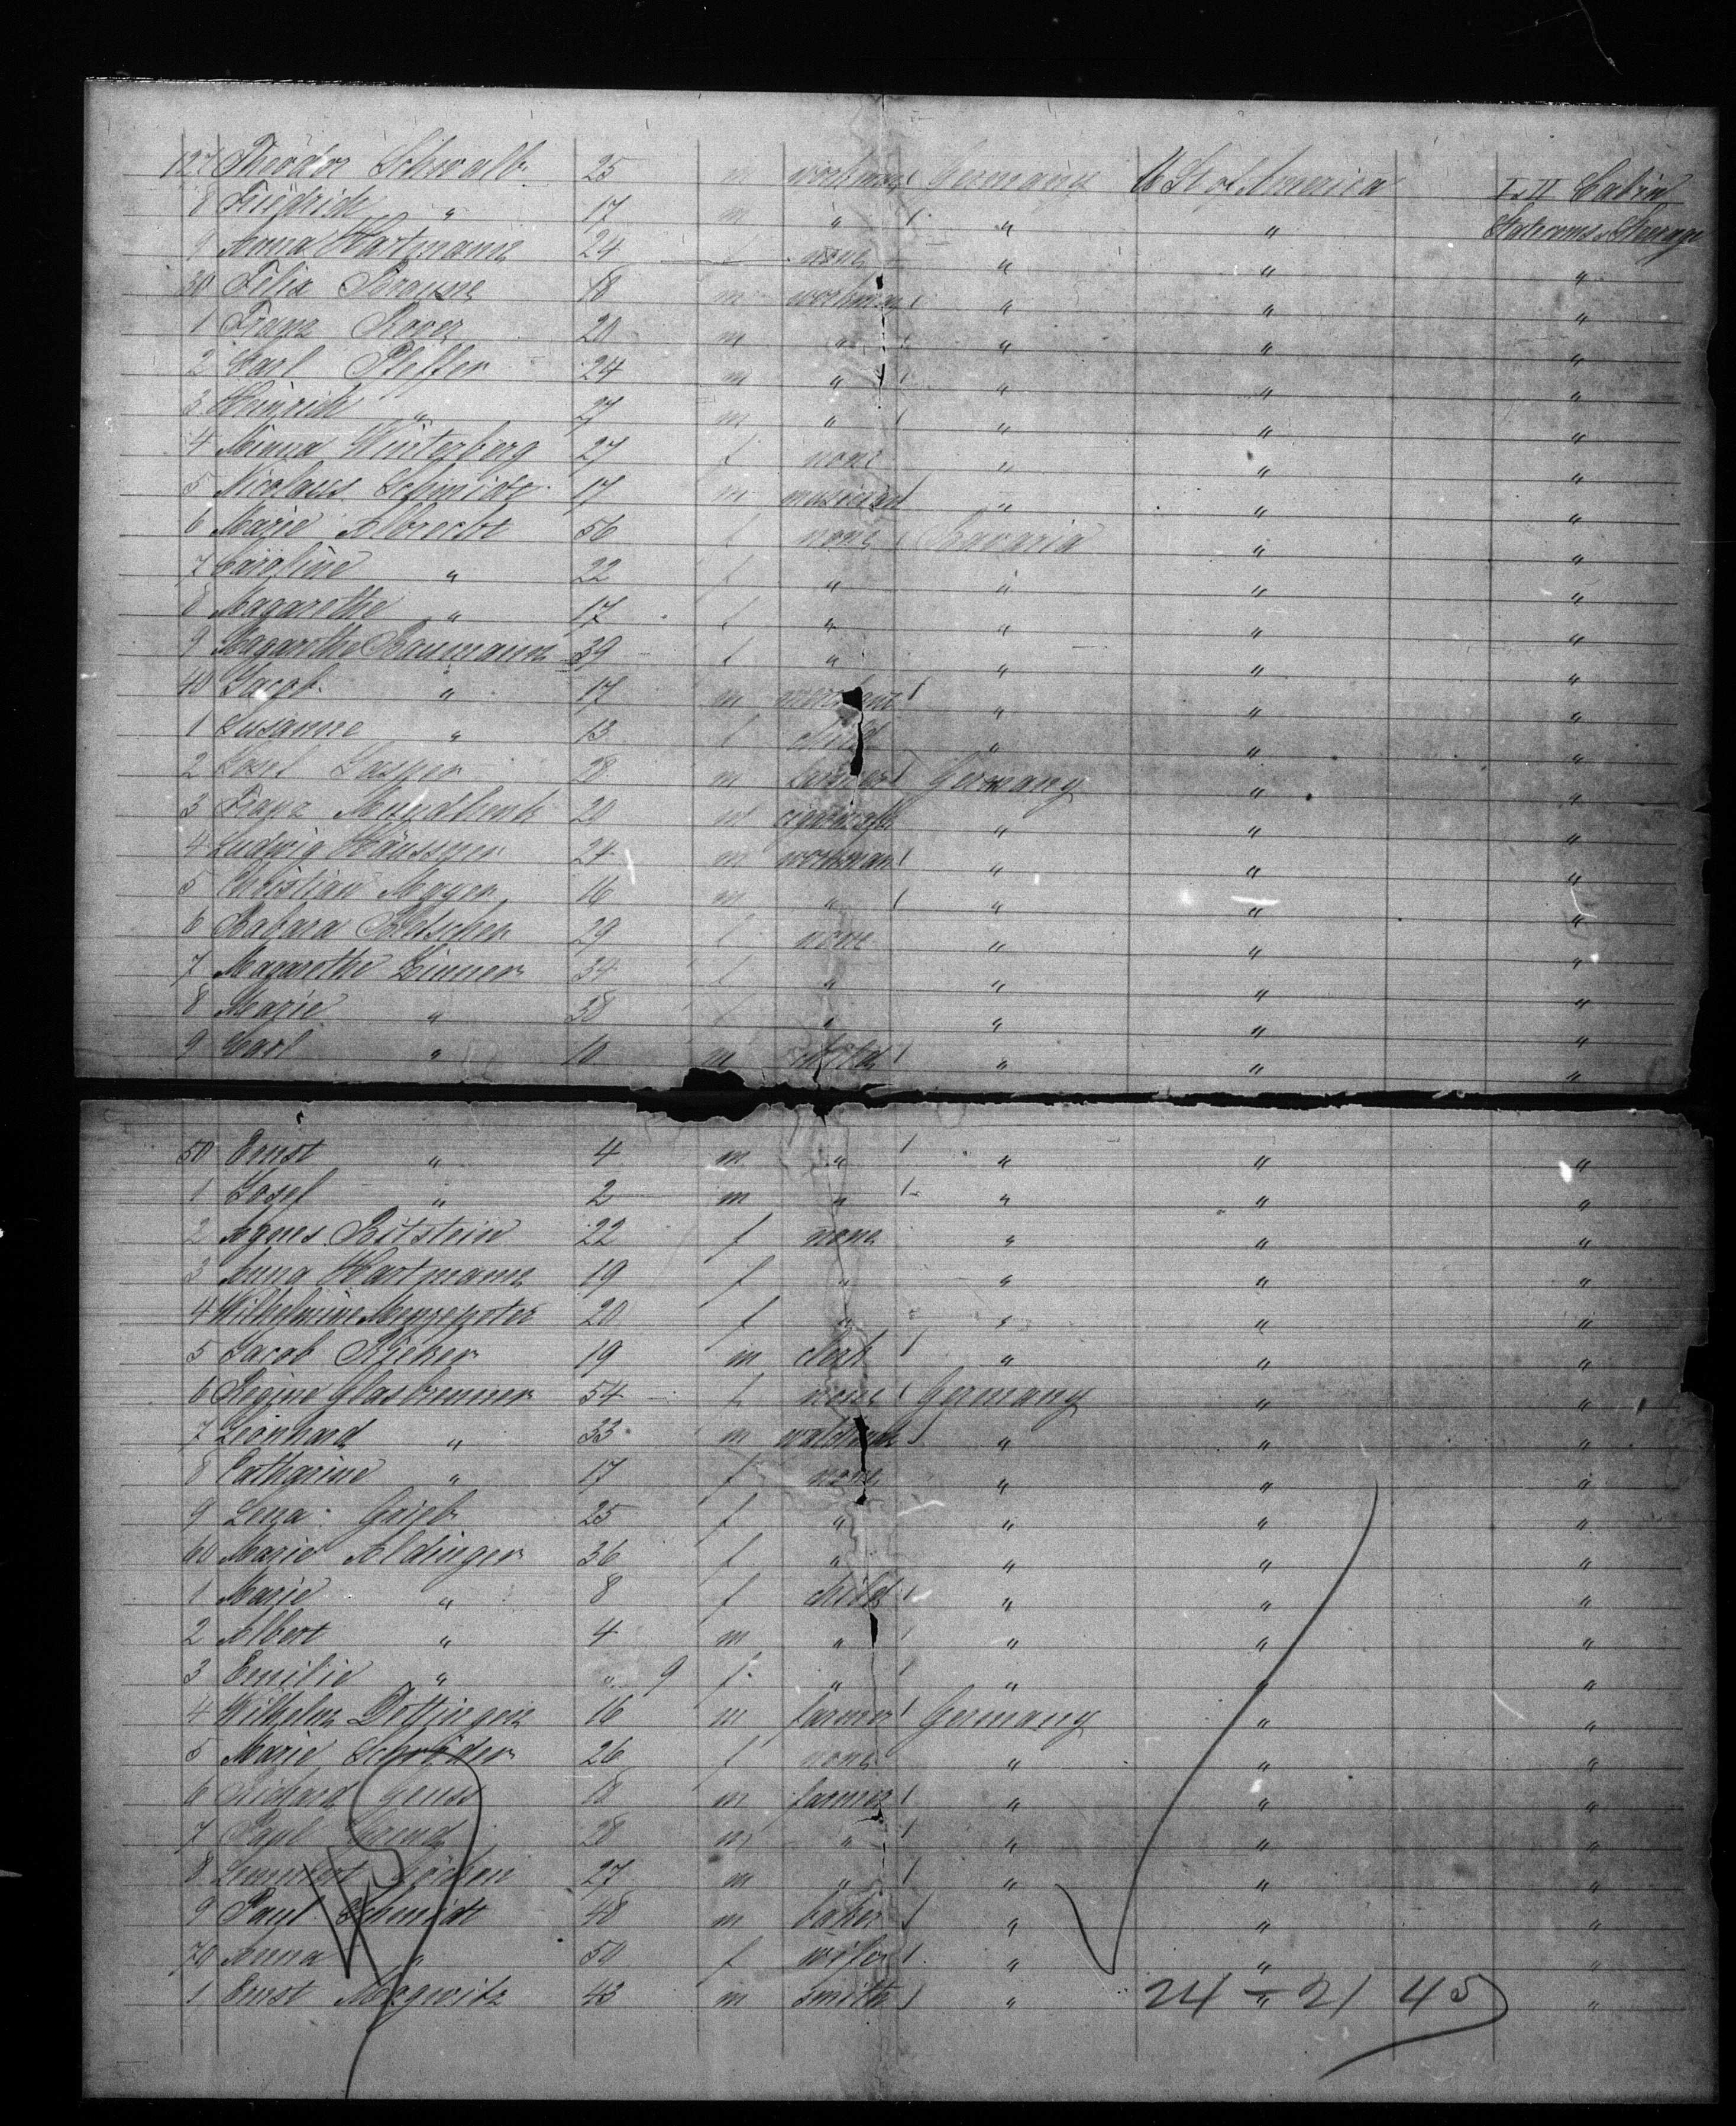 127 Theodor Schwalb 25 m workman Germany U St of America I & II Cabin
8 Friedrich " 17 m " " " Staterooms & Steerage
9 Anna Hartmann 24 none " " "
30 Felix Braune 18 m workman " " "
1 Franz 20 m " " " "
2 Karl Pfeffer 24 m " " " "
3 Heinrich " 27 m " " " "
4 Minna Winterberg 27 f none " " "
5 Nicolaus Schmidt 17 m musician " " "
6 Marie Albrecht 56 f none Bavaria " "
7 Caroline " 22 f " " " "
8 Magarethe " 17 f " " " "
9 Magarethe Baumann 39 f " " " "
40 Jacob " 17 m " " "
1 Susanne " 13 f child " " "
2 Josef 28 m farmer Germany " "
3 Franz 20 m " " "
4 Ludwig Häussner 24 m workman " " "
5 Christian Mayer 16 m " " " "
6 Babara 29 f none " " "
7 Magarethe Zinner 34 f " " " "
8 Marie " 38 f " " " "
9 Carl " 10 m child " " "
50 Ernst " 4 m " " " "
1 Josef " 2 m " " " "
2 Agnes 22 f none " " "
3 Anna Hartmann 19 f " " " "
4 Wilhelmine 20 f " " " "
5 Jacob 19 m clerk " " "
6 Regine Glasbrenner 54 f none Germany " "
7 Leonhard " 33 m " " "
8 Catharine " 17 f none " " "
9 Lena Grieb 25 f " " " "
60 Marie Aldinger 36 f " " " "
1 Marie " 8 f child " " "
2 Albert " 4 m " " " "
3 Emilie " " 9 f " " " "
4 Wilhelm Dottinger 16 m farmer Germany " "
5 Marie Schröder 26 f none " " "
6 Richard Geuss 18 m farmer " " "
7 Paul 28 m " " " "
8 27 m " " " "
9 Paul Schmidt 48 m baker " " "
70 Anna " 50 f wife " " "
1 Ernst Megwitz 43 m smith " " "
24 – 21 45